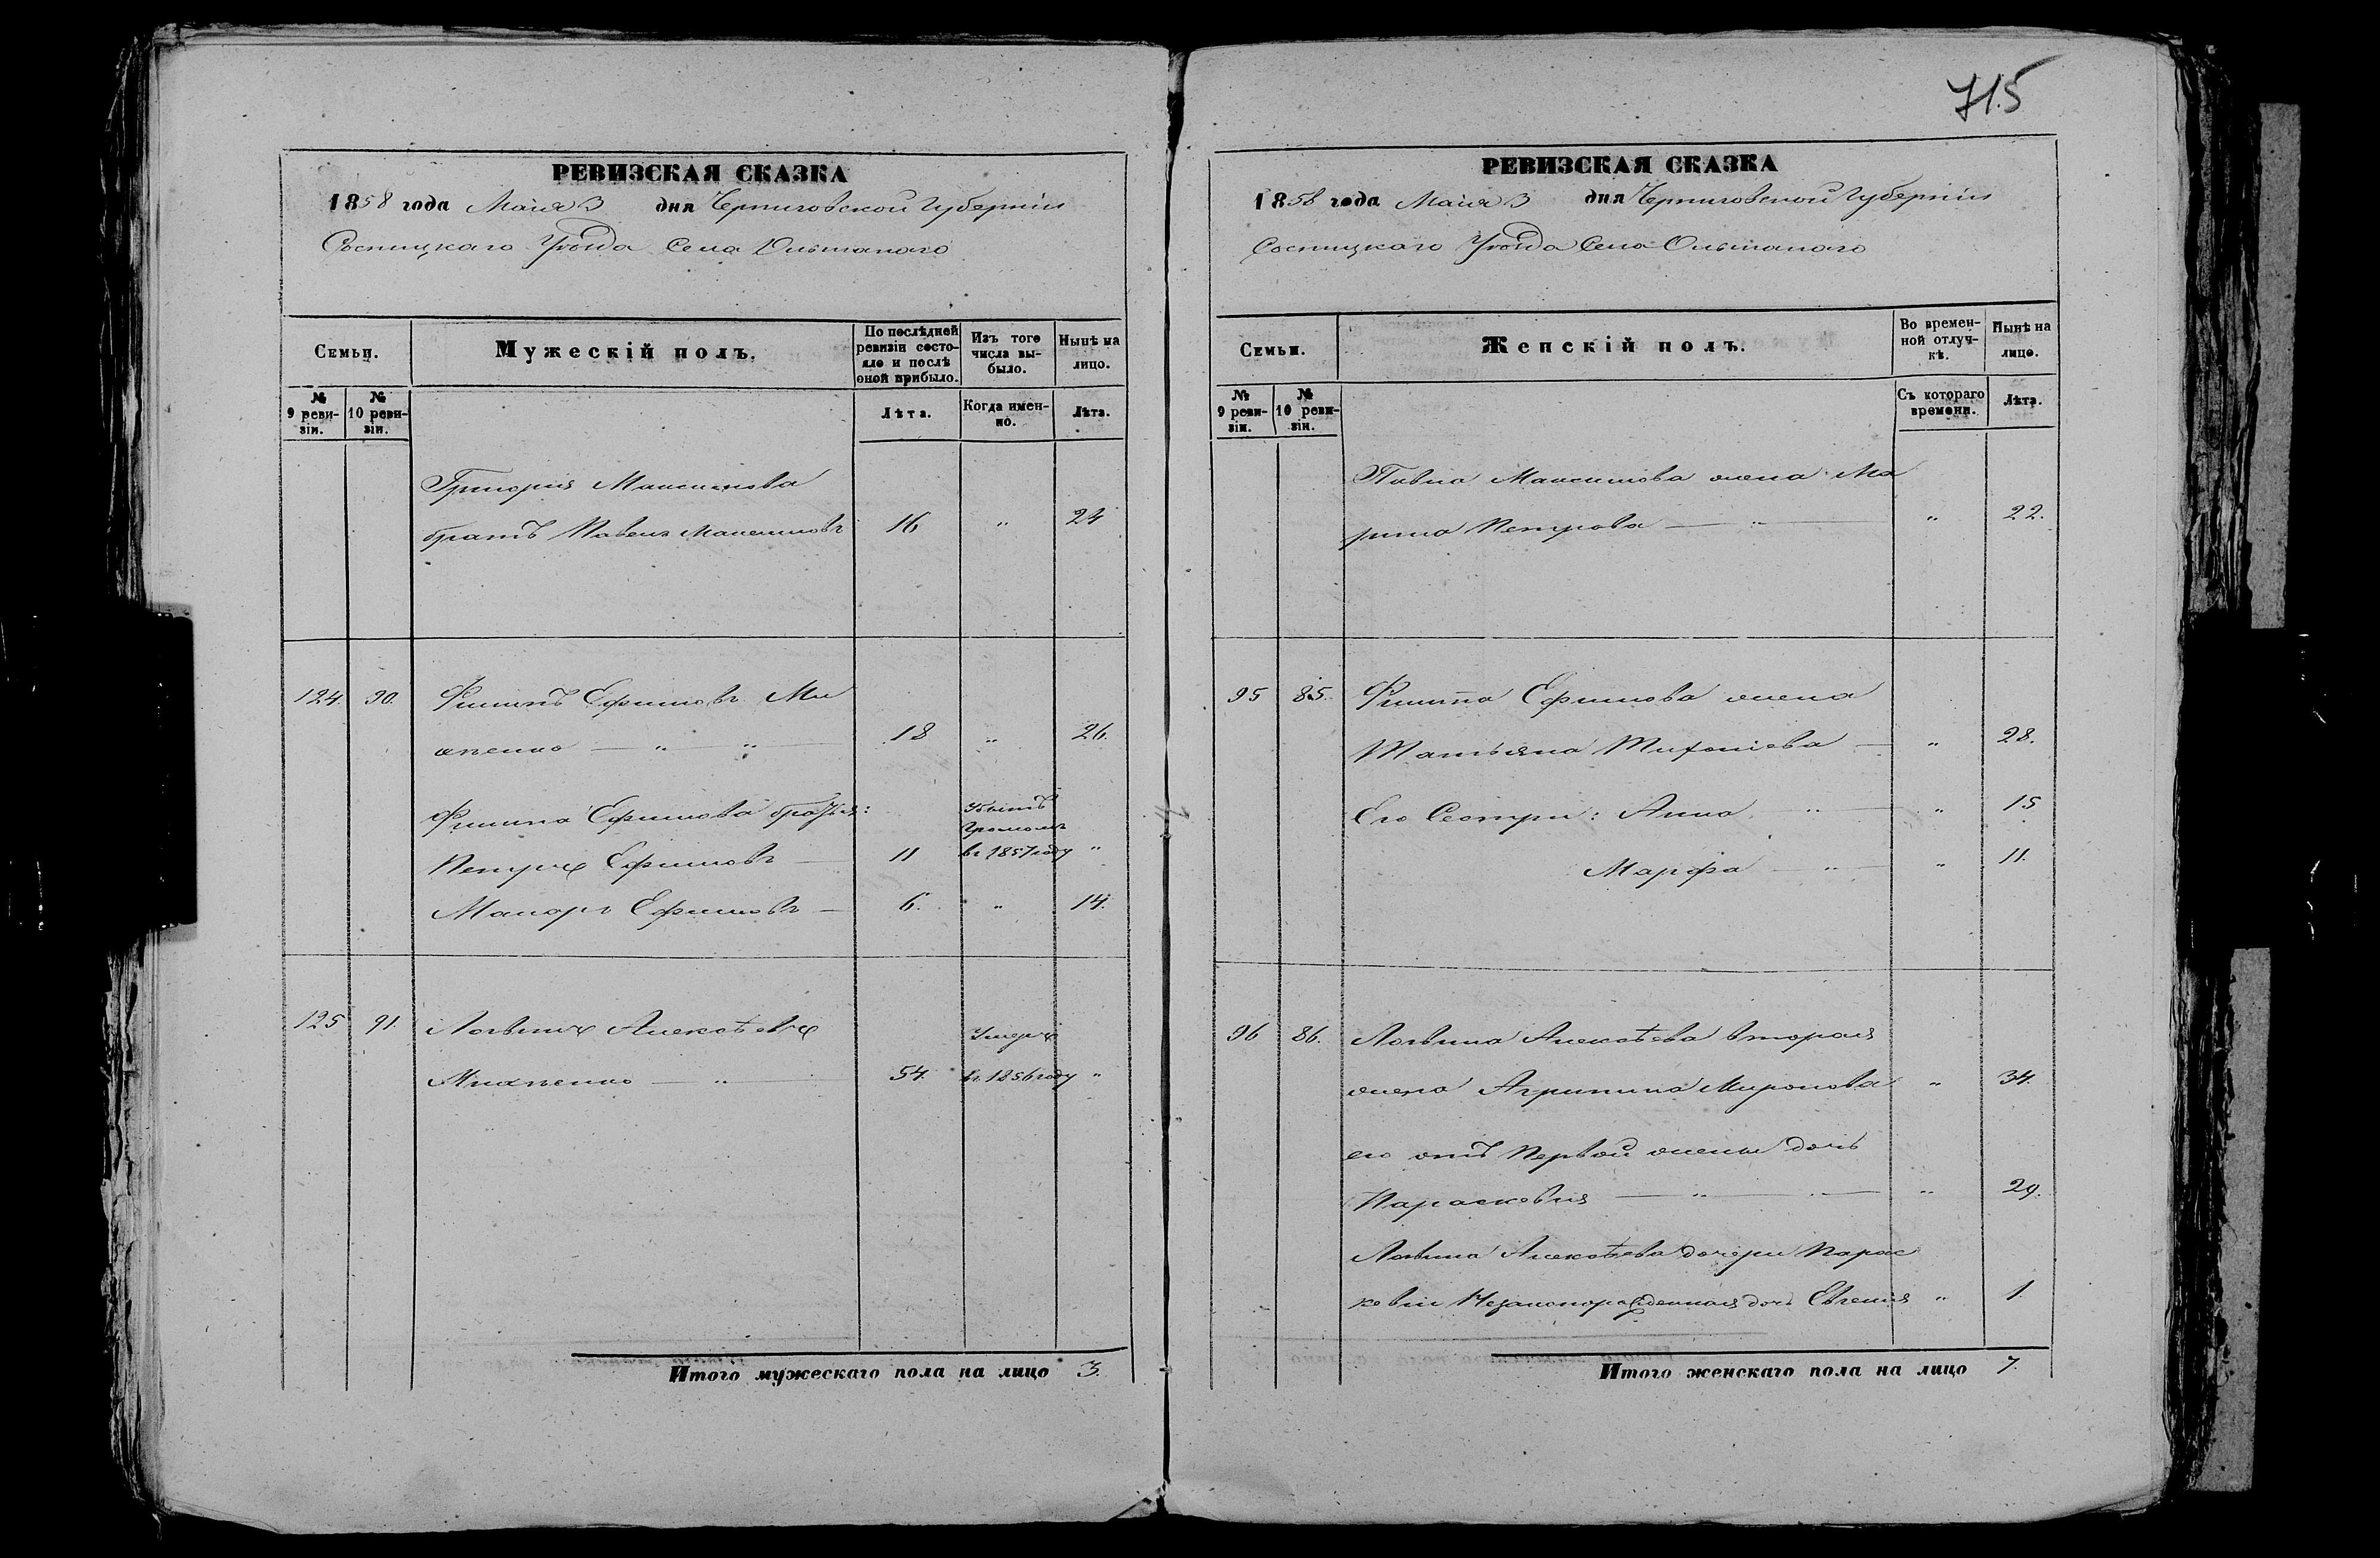 715
РЕВИЗСКАЯ СКАЗКА
1858 года Маія 3 дня Черниговской Губерніи
Сосницкаго Уѣзда Села Ольшанаго
Семьи.
Мужескій полъ.
По послѣдней ревизіи состояло и послѣ оной прибыло.
Изъ того числа выбыло.
Нынѣ на лицо.
№ 9 ревизіи.
№ 10 ревизіи.
Лѣта.
Когда именно.
Лѣта.
Григорія Максимова
братъ Павелъ Максимовъ 16 " 24
124. 90. Филипъ Ефимовъ
18 " 26.
Филипа Ефимова братья:
убитъ Громомъ
Петръ Ефимовъ 11 въ 1857 году "
Макаръ Ефимовъ 6. " 14.
125 91. Логвинъ Алексѣевъ
Умеръ
54. въ 1856 году "
Итого мужескаго пола на лицо 3.
РЕВИЗСКАЯ СКАЗКА
1858 года Маія 3 дня Черниговской Губерніи
Сосницкаго Уѣзда Села Ольшанаго
Семьи.
Женскій полъ.
Во временной отлучкѣ.
Нынѣ на лицо.
№ 9 ревизіи.
№ 10 ревизіи.
Съ котораго времени.
Лѣта.
Павла Максимова жена Ма
рина Петрова " " 22.
95 85. Филипа Ефимова жена
Татьяна Тихоніева " 28.
Его Сестри: Анна " " 15
Марфа " " 11.
96 86. Логвина Алексѣева вторая
жена Агрипина Миронова " 34.
его отъ Первой жены дочь
Параскевія " " 29.
Логвина Алексѣева дочери Парас
кевіи Незаконорожденная дочь Евгенія " 1.
Итого женскаго пола на лицо 7.